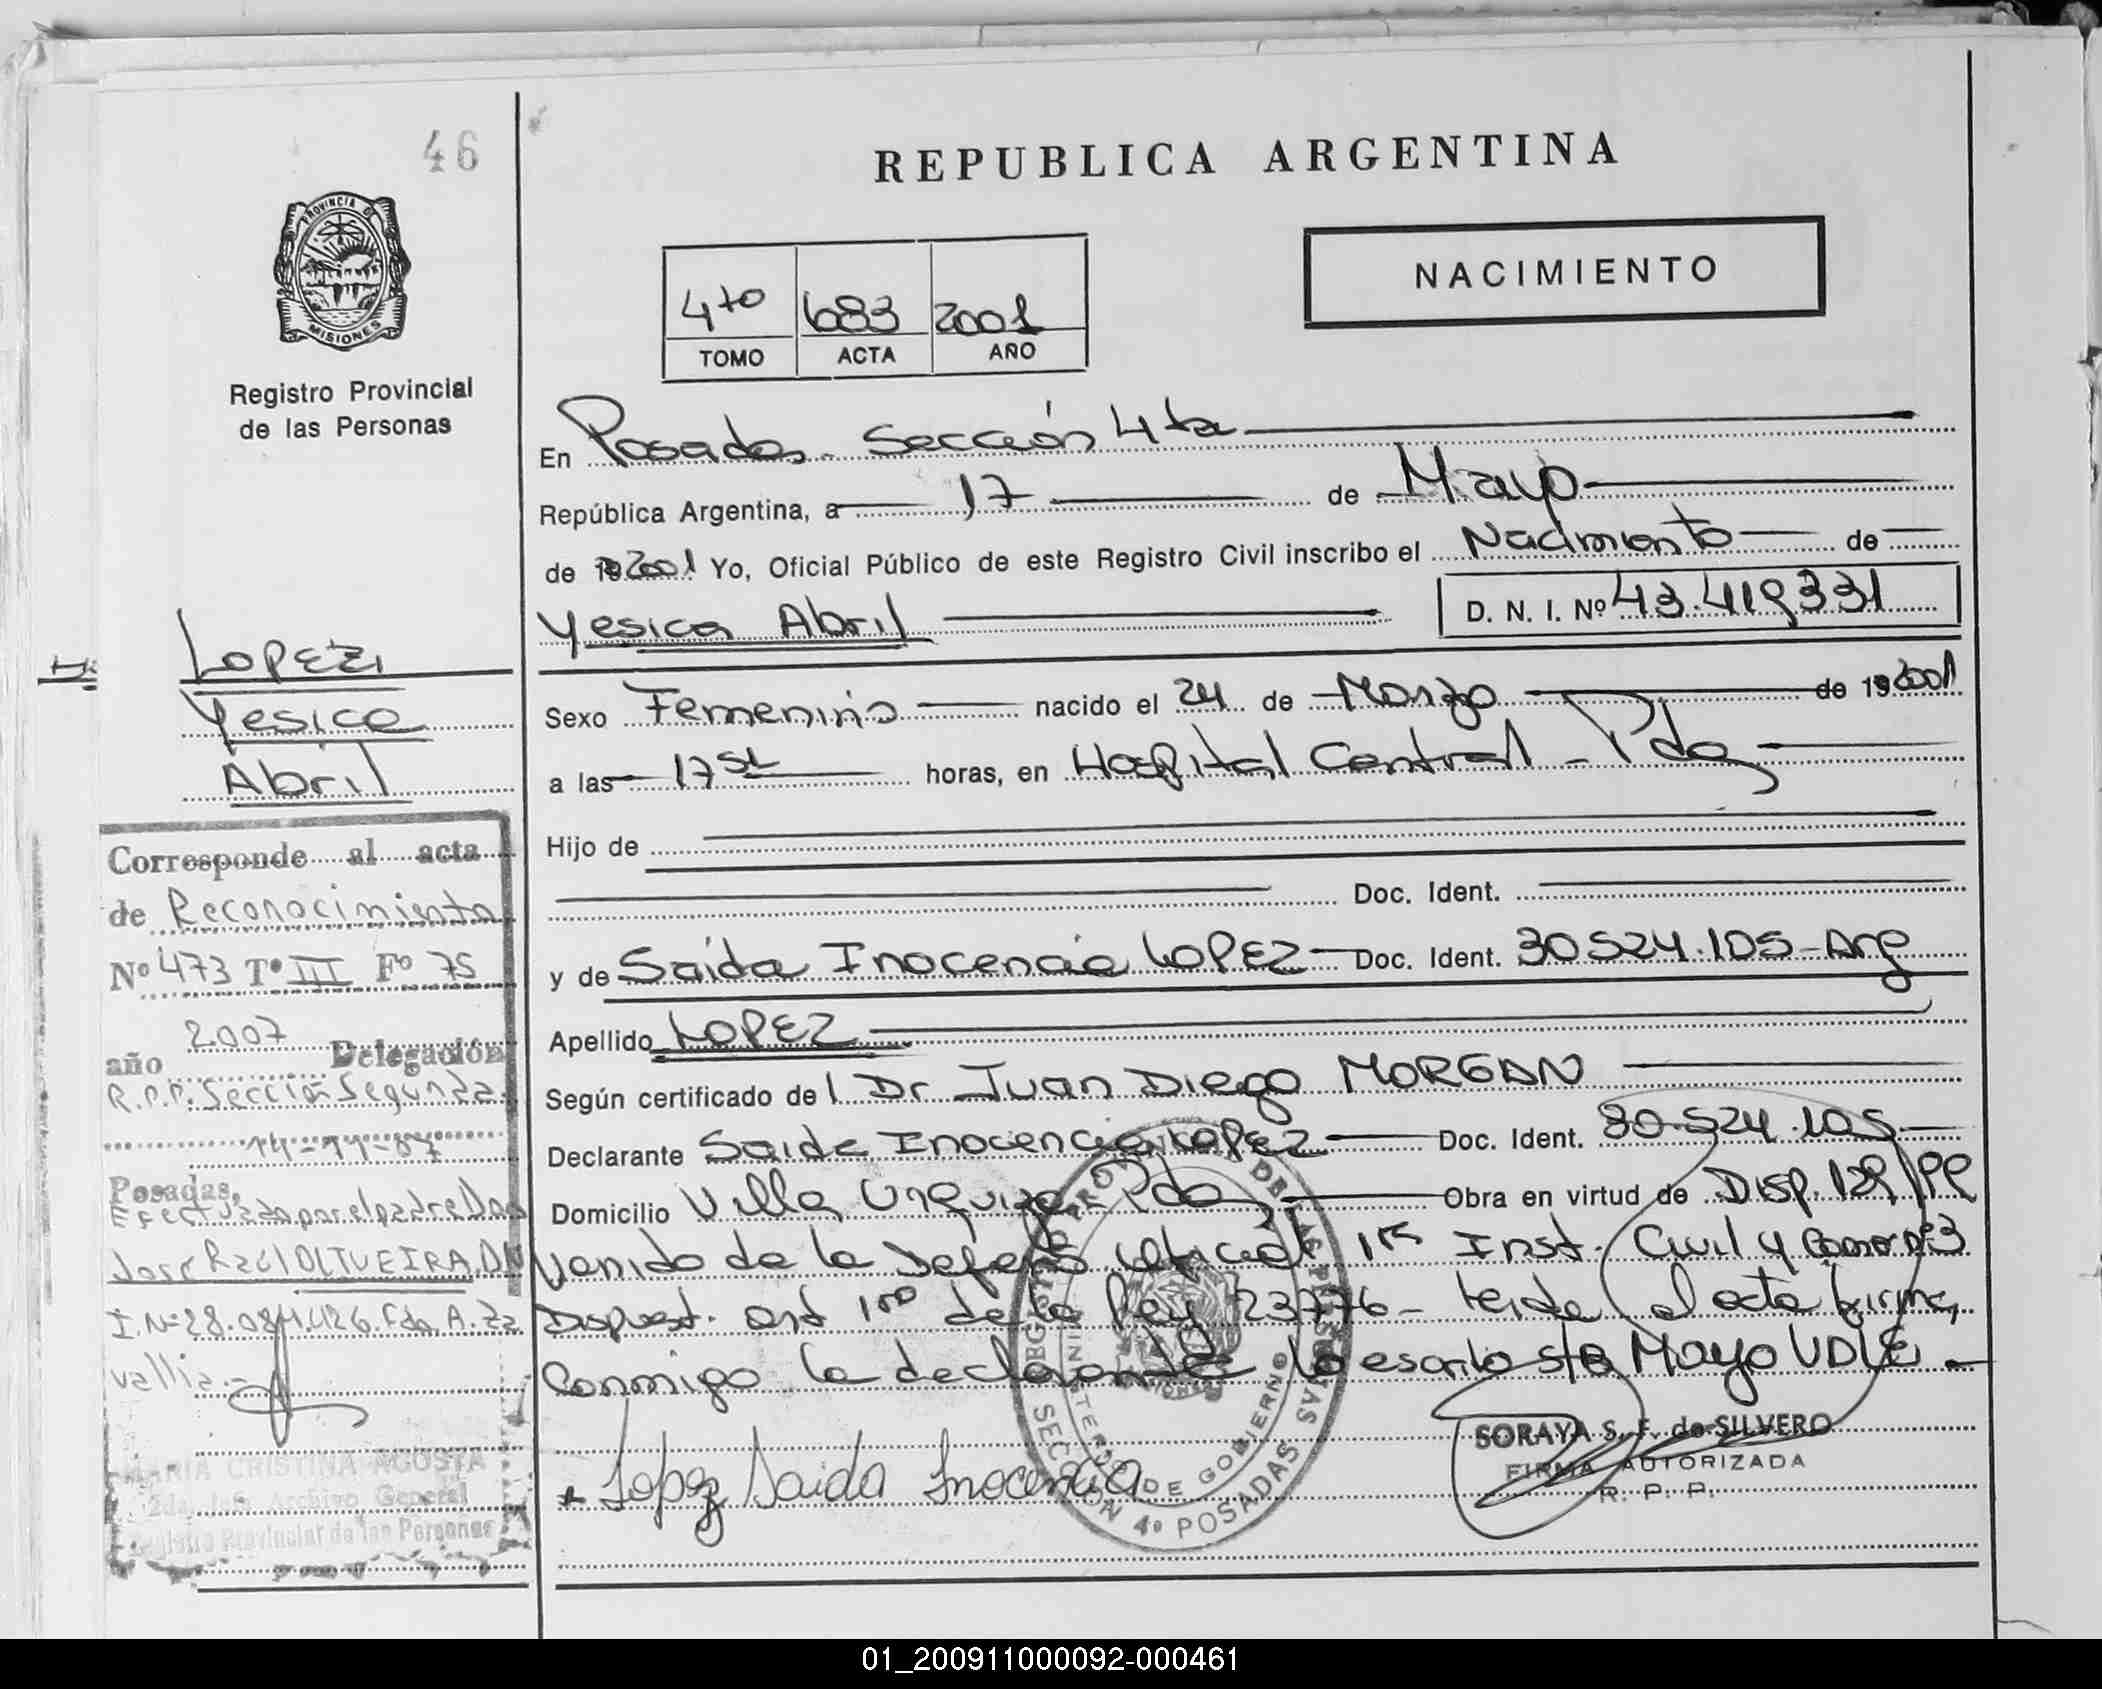 46
PROVINCIA D
MISIONES
Registro Provincial
de las Personas
REPUBLICA ARGENTINA
NACIMIENTO
4to 683 2001
TOMO ACTA AÑO
En Posadas - Sección 4ta
República Argentina, a 17 de Mayo
de 2001 Yo, Oficial Público de este Registro Civil inscribo el Nacimiento de
Yesica Abril D. N. I. Nº 43.419.331
Sexo Femenino nacido el 24 de Marzo de 19 2001
a las 17 horas, en Hospital Central - Pdas
Hijo de
Doc. Ident.
y de Saida Inocencia LOPEZ Doc. Ident. 30.524.105 - Arg
Apellido LOPEZ
Según certificado del Dr Juan Diego MORGAN
Declarante Saida Inocencia LOPEZ Doc. Ident. 30.524.105
Domicilio Villa Urquiza Pdas Obra en virtud de Disp.
de la 1ra Inst. Civil y
art 1ro de la Ley 23776 - Leida el acta firma
conmigo la declarante Mayo VALE
Lopez Saida Inocencia
SORAYA S. F. de SILVERO
FIRMA AUTORIZADA
R. P. P.
REGISTRO PROV DE LAS PERSONAS
MINISTERIO DE GOBIERNO
SECCION 4º POSADAS
LOPEZ
Yesica
Abril
Corresponde al acta
de Reconocimiento
Nº 473 Tº III Fº 75
año 2007 Delegación
R.P.P. Sección Segunda
14-11-07
Posadas,
Efectuado por el padre Don
José Raúl OLIVEIRA, DN
I. Nº 28.084.426. Fdo. A. Za
valli
MARIA CRISTINA ACOSTA
2da. Jefe Archivo General
Registro Provincial de las Personas
01_200911000092-000461